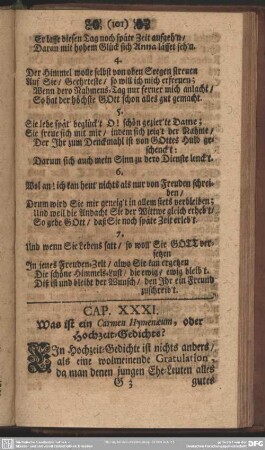 (101)
Er lasse diesen Tag noch späte Zeit aufgeh'n,
Daran mit hohem Glück sich Anna lässet seh'n.
4.
Der Himmel wolle selbst von oben Seegen streuen
Auf Sie, Geehrteste, so will ich mich erfreuen;
Wenn dero Nahmens-Tag nur ferner mich anlacht,
So hat der höchste GOtt schon alles gut gemacht.
5.
Sie lebe spät beglückt O! schön gezier'te Dame;
Sie freue sich mit mir, indem sich zeig't der Nahme,
Der Ihr zum Denckmahl ist von GOttes Huld geschencket:
Darum sich auch mein Sinn zu dero Dienste lenck't.
6.
Wol an! ich kan heut' nichts als nur von Freuden schreiben,
Drum wird Sie mir geneig't in allem stets verbleiben;
Und weil die Andacht Sie der Wittwe gleich erheb't,
So gebe GOtt, daß Sie noch späte Zeit erleb't.
7.
Und wenn Sie Lebens satt, so woll' Sie GOTT versetzen
In jenes Freuden-Zelt, alwo Sie kan ergetzen
Die schöne Himmels-Lust, die ewig, ewig bleib't.
Diß ist und bleibt der Wunsch, den Ihr ein Freund
zuschreib't.
CAP. XXXI.
Was ist ein Carmen Hymenæum, oder
Hochzeit-Gedichte?
EIn Hochzeit-Gedichte ist nichts anders,
als eine wolmeinende Gratulation,
da man denen jungen Ehe-Leuten alles
G 3
gutes